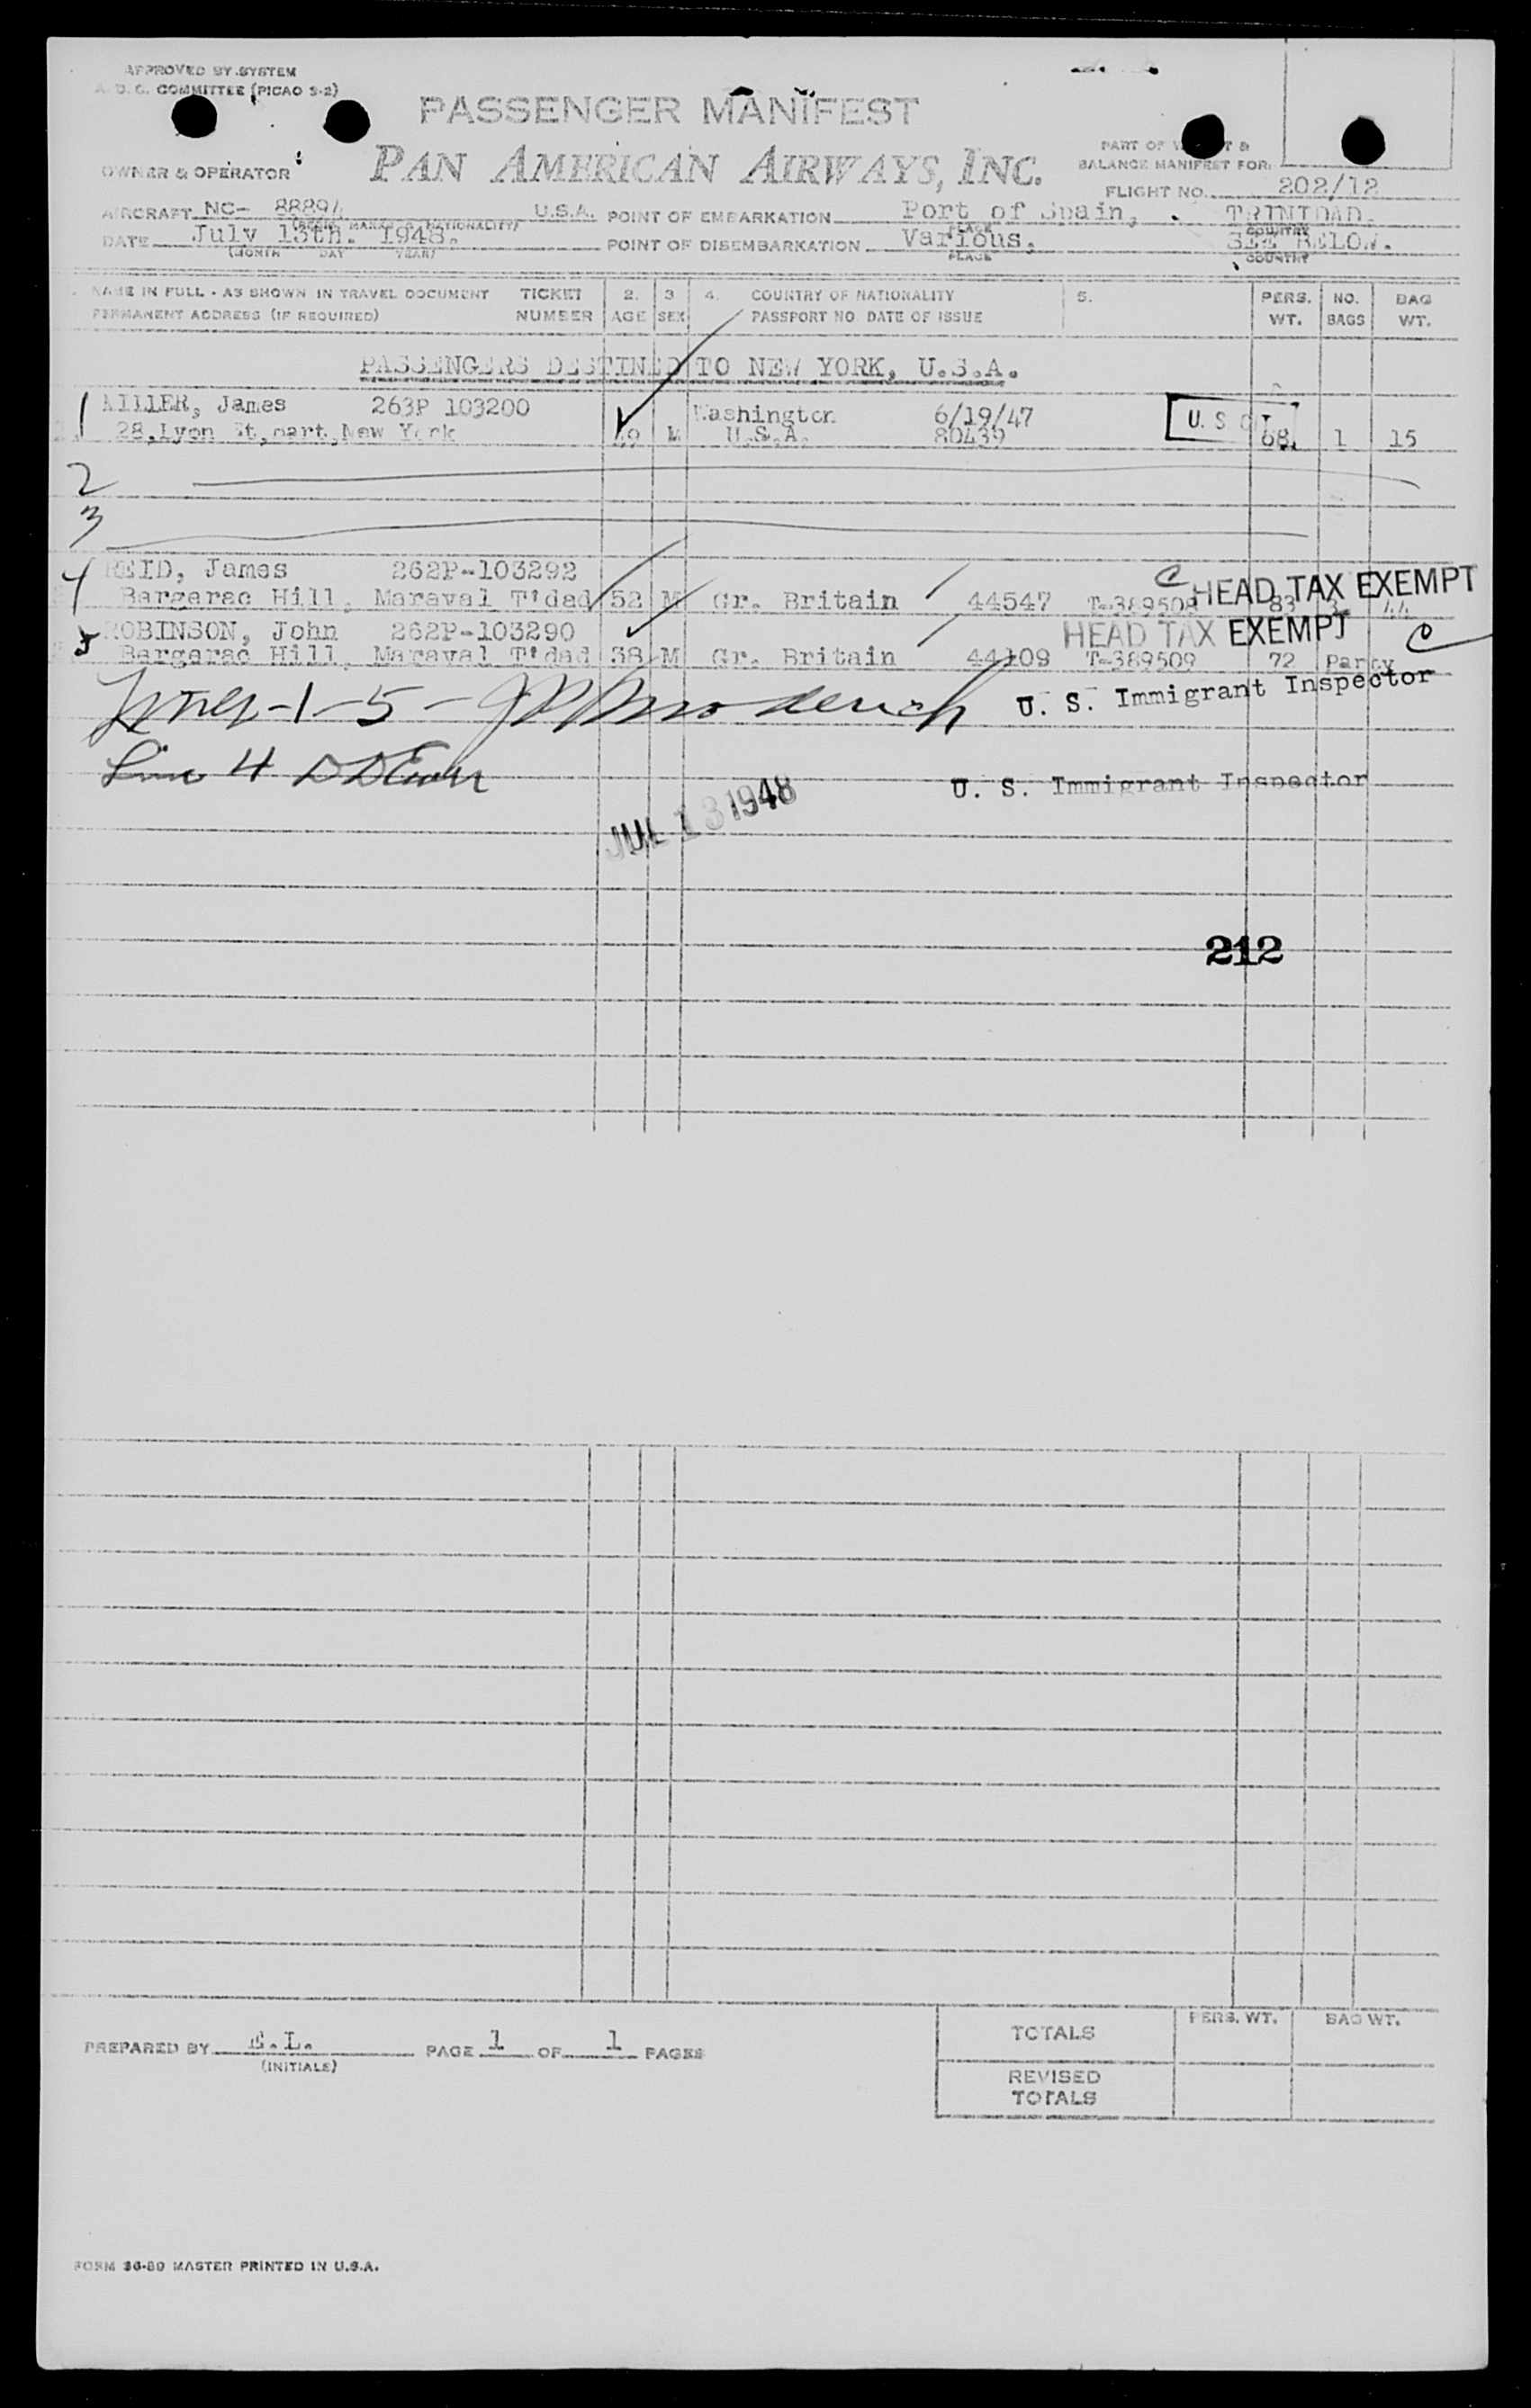 APPROVED BY SYSTEM
A. D. C. COMMITTEE (PICAO S-2)
PASSENGER MANIFEST
OWNER & OPERATOR PAN AMERICAN AIRWAYS, INC.
PART OF & BALANCE MANIFEST FOR:
FLIGHT NO. 202/12
AIRCRAFT NC- 88894 U.S.A. POINT OF EMBARKATION Port of Spain, TRINIDAD.
PLACE COUNTRY
DATE July 13th. 1948. POINT OF DISEMBARKATION Various, SEE BELOW.
(MONTH DAY YEAR) PLACE COUNTRY
NAME IN FULL - AS SHOWN IN TRAVEL DOCUMENT TICKET 2. 3 4. COUNTRY OF NATIONALITY 5. PERS. NO. BAG
PERMANENT ADDRESS (IF REQUIRED) NUMBER AGE SEX PASSPORT NO DATE OF ISSUE WT. BAGS WT.
PASSENGERS DESTINED TO NEW YORK, U.S.A.
1 MILLER, James 263P 103200 Washington 6/19/47 U. S
28, Lyon St, New York 49 M U.S.A. 80439 68. 1 15
2
3
4 REID, James 262P-103292 C HEAD TAX EXEMPT
Bergerac Hill, Maraval T'dad 52 M Gr. Britain 44547 T-389508 83 3 44
5 ROBINSON, John 262P-103290 HEAD TAX EXEMPT C
Bergerac Hill, Maraval T'dad 38 M Gr. Britain 44109 T-389509 72 Party
Lines -1-5- U. S. Immigrant Inspector
Line 4 U. S. Immigrant Inspector
JUL 13 1948
212
PREPARED BY E.L. PAGE 1 OF 1 PAGES
(INITIALS)
PERS. WT. BAG WT.
TOTALS
REVISED
TOTALS
FORM 36-80 MASTER PRINTED IN U.S.A.